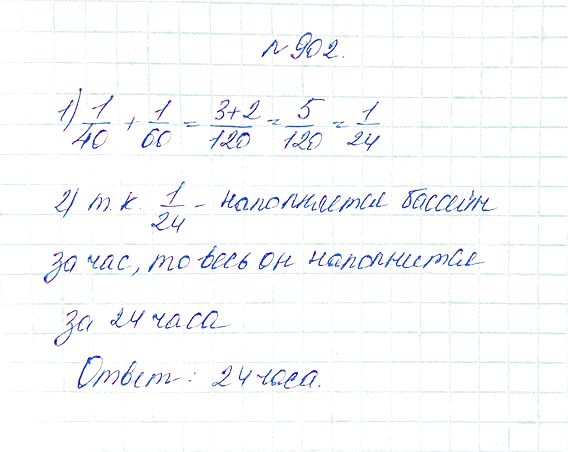 № 902.
1) 1/40 + 1/60 = 3+2/120 = 5/120 = 1/24
2) т.к. 1/24 - наполняется бассейн
за час, то весь он наполнится
за 24 часа
Ответ: 24 часа.